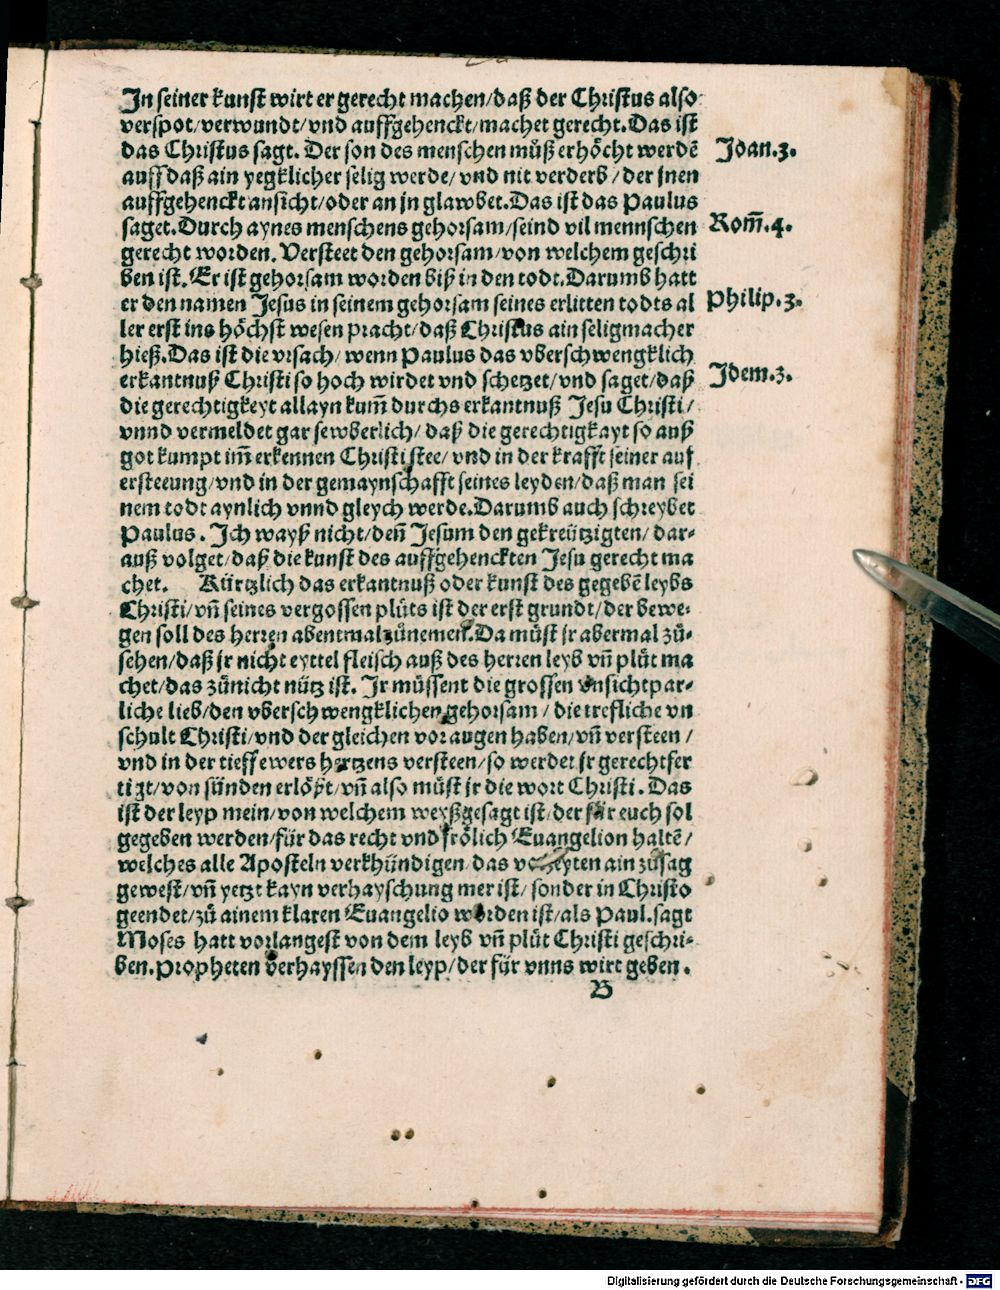 In seiner kunst wirt er gerecht machen/daß der Christus also
verspot/verwundt/vnd auffgehenckt/machet gerecht.Das ist
das Christus sagt. Der son des menschen müß erhöcht werdē
auffdaß ain yegklicher selig werde/ vnd nit verderb / der jnen
auffgehenckt ansicht/oder an jn glawbet.Das ist das Paulus
saget.Durch aynes menschens gehorsam/seind vil mennschen
gerecht worden. Versteet den gehorsam/von welchem geschri
ben ist. Er ist gehorsam worden biß in den todt.Darumb hatt
er den namen Jesus in seinem gehorsam seines erlitten todts al
ler erst ins höchst wesen pracht/daß Christus ain seligmacher
hieß.Das ist die vrsach/ wenn Paulus das vberschwengklich
erkantnuß Christi so hoch wirdet vnd schetzet/vnd saget/daß
die gerechtigkeyt allayn kum̄ durchs erkantnuß Jesu Christi/
vnnd vermeldet gar sewberlich/ daß die gerechtigkayt so auß
got kumpt im̄ erkennen Christi stee/ vnd in der krafft seiner auf
ersteeung/vnd in der gemaynschafft seines leyden/daß man sei
nem todt aynlich vnnd gleych werde.Darumb auch schreybet
Paulus. Ich wayß nicht/den̄ Jesum den gekreützigten/ dar-
auß volget/daß die kunst des auffgehenckten Jesu gerecht ma
chet. Kürtzlich das erkantnuß oder kunst des gegebē leybs
Christi/vn̄ seines vergossen plůts ist der erst grundt/der bewe-
gen soll des herren abentmal zůnemen.Da můst jr abermal zů-
sehen/daß jr nicht eyttel fleisch auß des herren leyb vn̄ plůt ma
chet/das zůnicht nütz ist. Jr müssent die grossen vnsichtpar-
liche lieb/den vberschwengklichen gehorsam / die trefliche vn
schult Christi/vnd der gleichen vor augen haben/vn̄ versteen /
vnd in der tieff ewers hertzens versteen/so werdet jr gerechtfer
tigt/von sünden erlößt/vn̄ also můst jr die wort Christi. Das
ist der leyp mein/von welchem weyßgesagt ist/der für euch sol
gegeben werden/für das recht vnd frölich Euangelion haltē/
welches alle Aposteln verkhündigen das vor zeyten ain zůsag
gewest/vn̄ yetzt kayn verhayschung mer ist/ sonder in Christo
geendet/zů ainem klaren Euangelio worden ist/als Paul.sagt
Moses hatt vorlangest von dem leyb vn̄ plůt Christi geschri-
ben.Propheten verhayssen den leyp/der für vnns wirt geben.
B
Joan.3.
Rom̄.4.
Philip.3.
Idem.3.
Digitalisierung gefördert durch die Deutsche Forschungsgemeinschaft - DFG